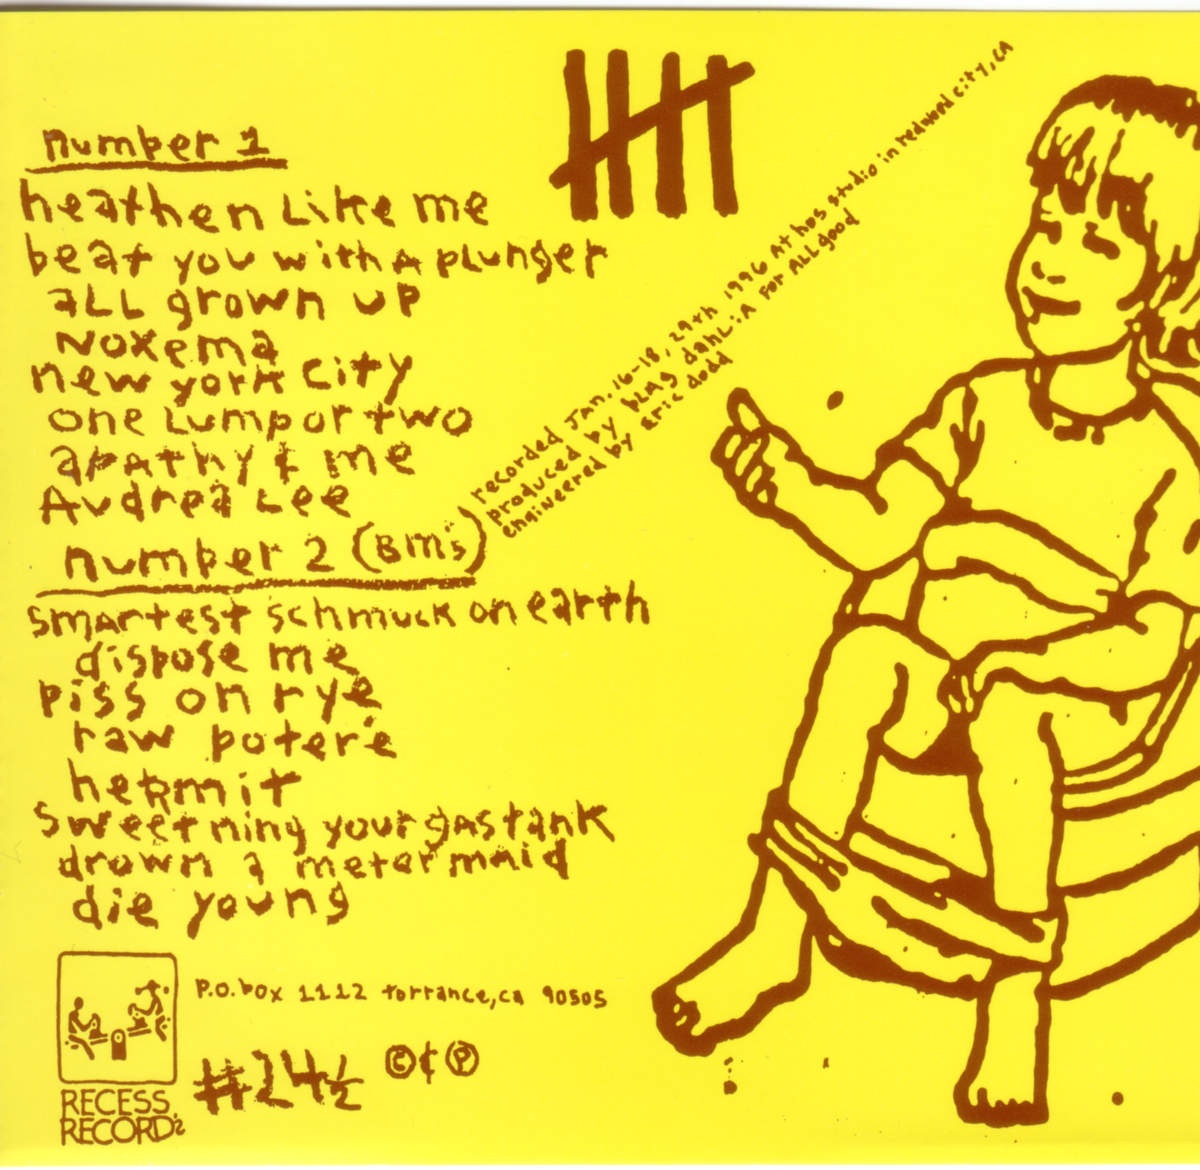 number 1
heathen Like me
beat you with A plunger
aLL grown up
Noxema
new york city
one Lump or two
apathy & me
Audrea Lee
number 2 (BM's)
smartest schmuck on earth
dispose me
piss on rye
raw poter'e
hermit
sweetning your gas tank
drown a meter maid
die young
recorded Jan. 16-18, 29th 1996 At hos studio in redwood city, CA
produced by bLAg dahLiA for ALLgood
engineered by Eric dodd
P.O. box 1112 torrance, ca 90505
#24½ © & ℗
RECESS
RECORDS